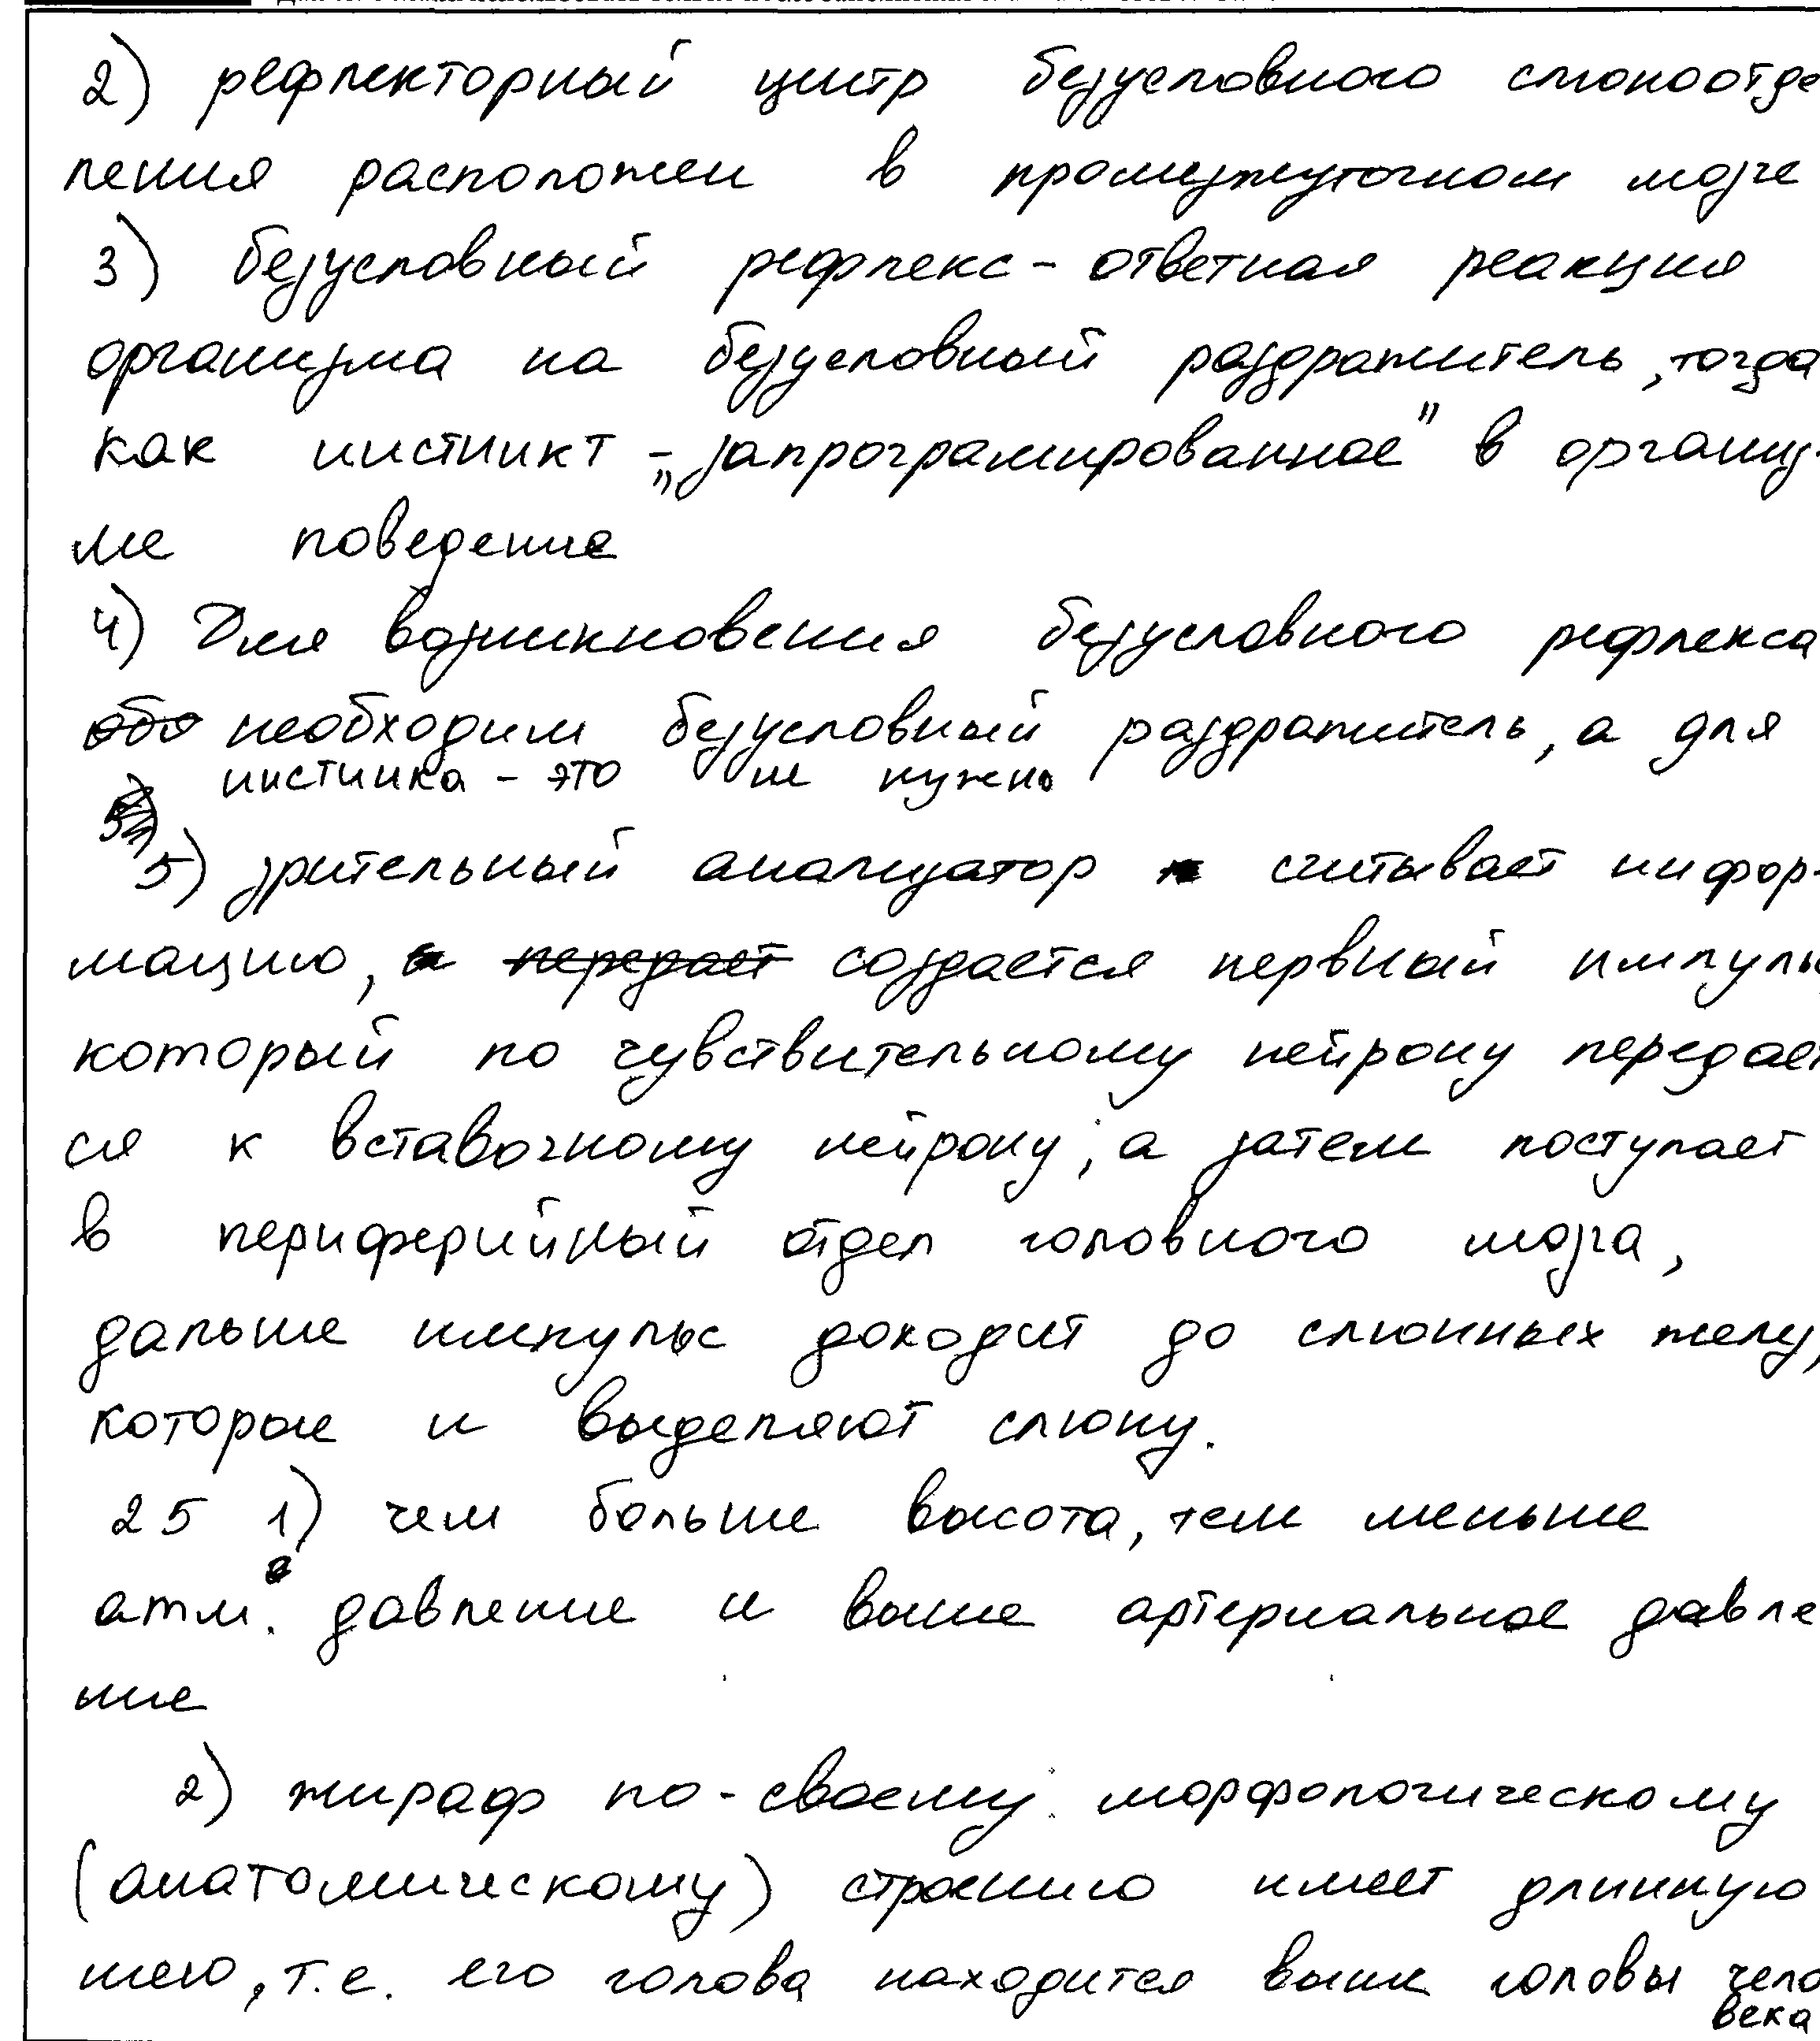 2) рефлекторный центр безусловного слюноотде
ления расположен в промежуточном мозге
3) безусловный рефлекс - ответная реакция
организма на безусловный раздражитель, тогда
как инстинкт - „запрограмированное" в организ-
ме поведение
4) Для возникновения безусловного рефлекса
обо необходим безусловный раздражитель, а для
инстинка - это не нужно
5) зрительный анализатор считывает инфор-
мацию, а передает создается нервный импульс,
который по чувствительному нейрону передает
ся к вставочному нейрону, а затем поступает
в периферийный отдел головного мозга,
дальше импульс доходит до слюнных желез,
которые и выделяют слюну.
25 1) чем больше высота, тем меньше
атм. давление и выше артериальное давле
ние
2) жираф по-своему морфологическому
(анатомическому) строению имеет длинную
шею, т.е. его голова находится выше головы чело
века